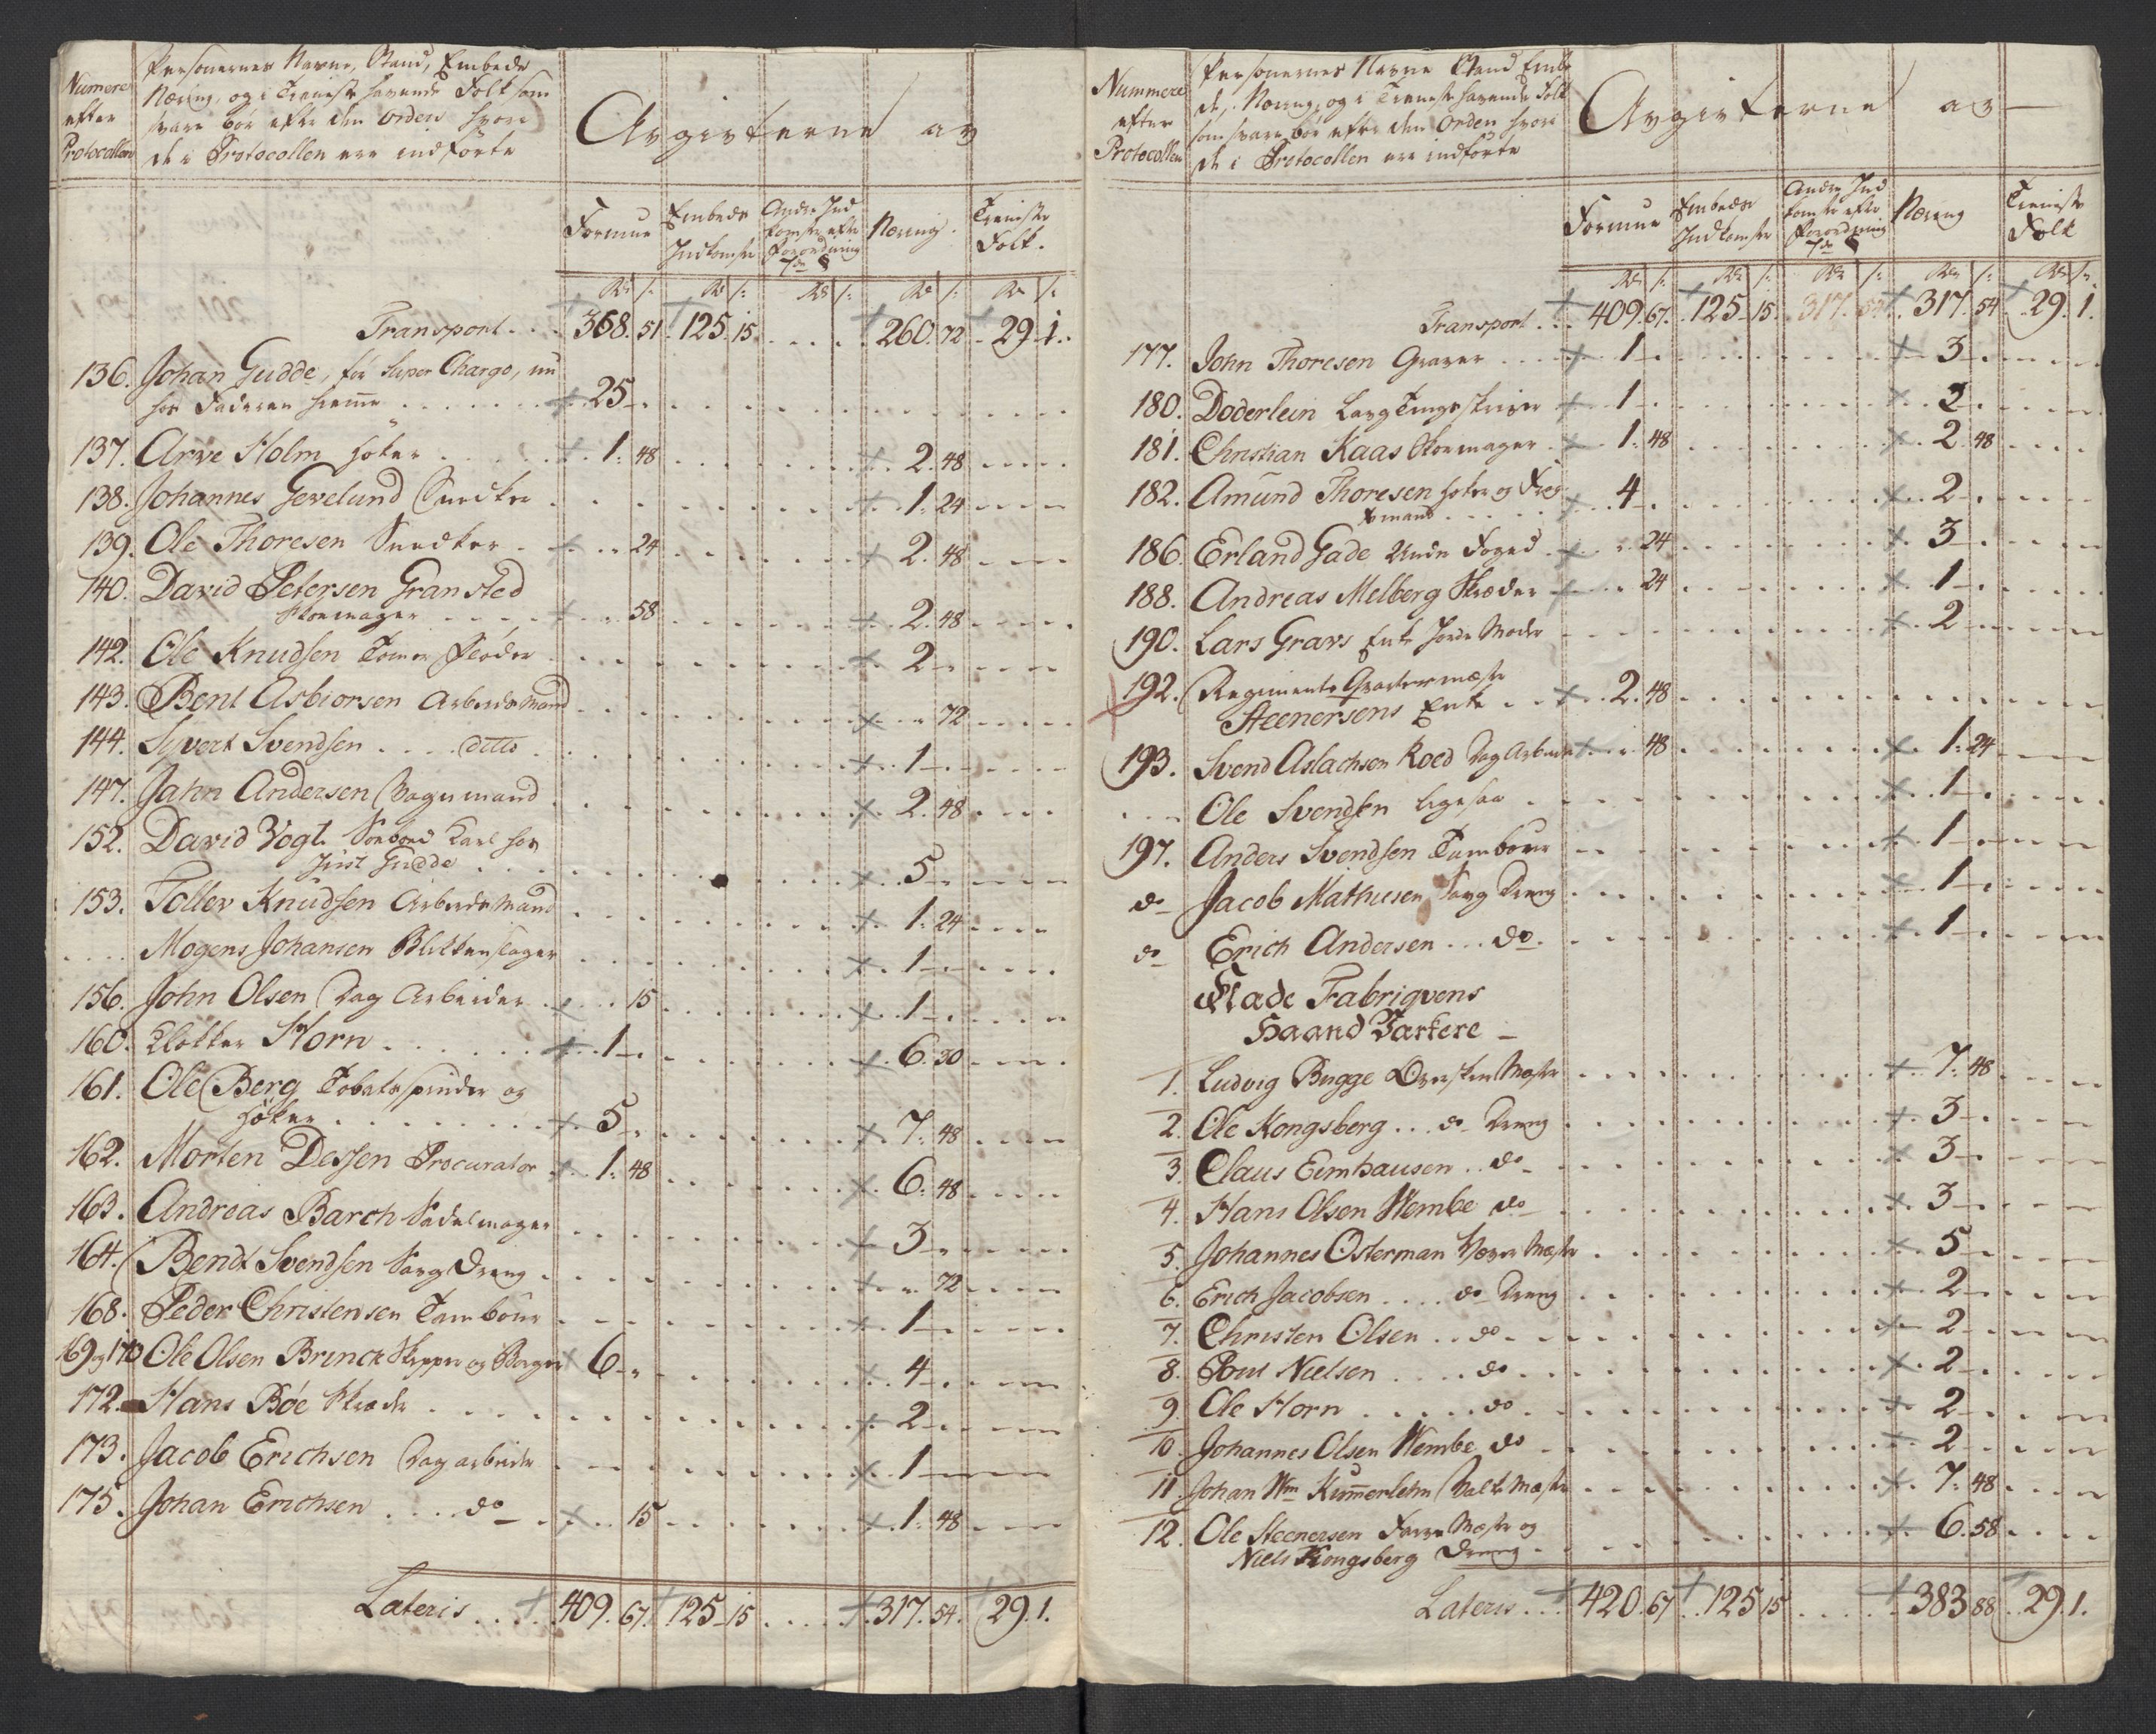 Numere
efter
Protocollen
Personernes Navne, Stand, Embede
Næring, og i Tieneste havende Folk som
svare bør efter den Orden hvori
de i Protocollen ere indførte
Avgivterne av
Formue
Embeds
Indkomster
Andre Ind
komster efter
Forordning
7de §
Næring
Tieniste
Folk.
Rd s: Rd s: Rd s: Rd s: Rd s:
Transport . . 368. 51 125. 15 . . . . 260. 72 29. 1.
136. Johan Gudde, før Super Chargo, nu
hos Faderen hiemme . . . . 25 –
137. Arve Holm Høker . . . 1. 48 . . . 2. 48
138. Johannes Gevelund Snedker . . . 1. 24
139. Ole Thoresen Snedker . . . 24 . . . 2. 48
140. David Petersen Gransted
Skoemager . . . 58 . . . 2. 48
142. Ole Knudsen Tømer Fløder . . . 2 –
143. Bent Asbiorsen Arbeidsmand . . . 72
144. Syvert Svendsen . . . ditto . . . 1 –
147. Jahn Andersen Bogn mand . . . 2. 48
152. David Vogt Karl hos
Just Gudde . . . 5 –
153. Tollev Knudsen Arbeidsmand . . . 1. 24
. . . . Mogens Johansen Blikkenslager . . . 1 –
156. John Olsen Dag Arbeider . . . 15 . . . 1 –
160. Klokker Horn . . . 1 – . . . 6. 30
161. Ole Berg Tobakspinder og
Høker . . . 5 – . . . 7. 48
162. Morten Dessen Procurator . . . 1. 48 . . . 6. 48
163. Andreas Barch Sadelmager . . . 3 –
164. Bendt Svendsen Saug Dreng . . . 72
168. Peder Christensen Tambour . . . 1 –
169 og 170 Ole Olsen Brinck Skipper og Borger 6 – . . . 4 –
172. Hans Bøe Skræder . . . 2 –
173. Jacob Erichsen Dag arbeider . . . 1 –
175. Johan Erichsen . . . do . . . 15 . . . 1. 48
Lateris . . 409. 67 125. 15 . . . . 317. 54. 29. 1.
Nummere
efter
Protocollen
Personernes Navne Stand Embe
de, Næring, og i Tieneste havende Folk
som svare bør efter den Orden hvori
de i Protocollen ere indførte
Avgivterne av
Formue
Embeds
Indkomster
Andre Ind
komster efter
Forordning
7de §
Næring
Tieniste
Folk
Rd s: Rd s: Rd s: Rd s: Rd s:
Transport . . 409. 67. 125. 15. 317. 54 317. 54 29. 1.
177. John Thoresen Graver . . . 1 – . . . 3 –
180. Doderlein Laugtingsskriver . . . 1 – . . . 2 –
181. Christian Kaas Skoemager . . . 1. 48 . . . 2. 48
182. Amund Thoresen Høker og
mand . . . 4 – . . . 2 –
186. Erland Gade Under Foged . . . 24 . . . 3 –
188. Andreas Melberg Skræder . . . 24 . . . 1 –
190. Lars Gravs Enke Jorde Moder . . . 2 –
192. Regiments Qvarteermæster
Steenersens Enke . . . 2. 48
193. Svend Aslachsen Roed Dag Arbeider . . . 48 . . . 1. 24
. . . Ole Svendsen ligesaa . . . 1 –
197. Anders Svendsen Tambour . . . 1 –
do Jacob Mathiesen Saug Dreng . . . 1 –
do Erich Andersen . . . do . . . 1 –
Flade Fabriqvens
Haand Værkere –
1. Ludvig Bugge Mester . . . 7. 48
2. Ole Kongsberg . . . do Dreng . . . 3 –
3. Claus Eimhausen . . do . . . 3 –
4. Hans Olsen Wembe do . . . 3 –
5. Johannes Osterman Mester . . . 5 –
6. Erich Jacobsen . . . do Dreng . . . 2 –
7. Christen Olsen . . do . . . 2 –
8. Poul Nielsen . . . do . . . 2 –
9. Ole Horn . . . do . . . 2 –
10. Johannes Olsen Wembe do . . . 2 –
11. Johan Wm Kummerlehn Mester . . . 7. 48
12. Ole Steenersen Farve Mester og
Niels Kongsberg Dreng . . . 6. 58
Lateris . . 420. 67 125 15 . . . . 383 88 29. 1.